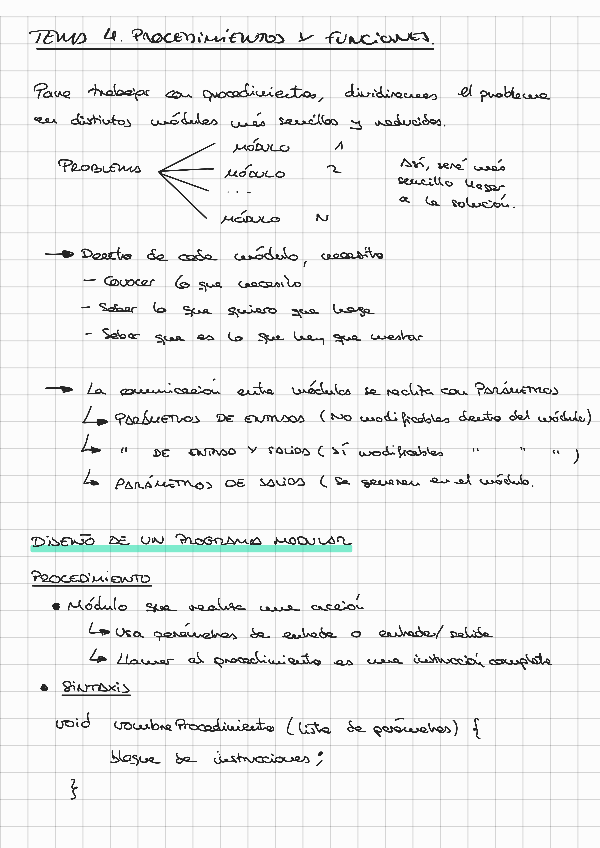 TEMA 4. PROCEDIMIENTOS Y FUNCIONES.
Para trabajar con procedimientos, dividiremos el problema
en distintos módulos más sencillos y reducidos.
PROBLEMA
MÓDULO 1
MÓDULO 2
...
MÓDULO N
Así, será más
sencillo llegar
a la solución.
→ Dentro de cada módulo, necesito
- Conocer lo que necesito
- Saber lo que quiero que haga
- Saber que es lo que hay que mostrar
→ La comunicación entre módulos se realiza con PARÁMETROS
↳ PARÁMETROS DE ENTRADA (No modificables dentro del módulo)
↳ " DE ENTRADA Y SALIDA (SÍ modificables " " ")
↳ PARÁMETROS DE SALIDA (Se generan en el módulo.
DISEÑO DE UN PROGRAMA MODULAR
PROCEDIMIENTO
• Módulo que realiza una acción
↳ Usa parámetros de entrada o entrada/salida
↳ Llamar al procedimiento es una instrucción completa
• SINTAXIS
void nombreProcedimiento (lista de parámetros) {
bloque de instrucciones;
}